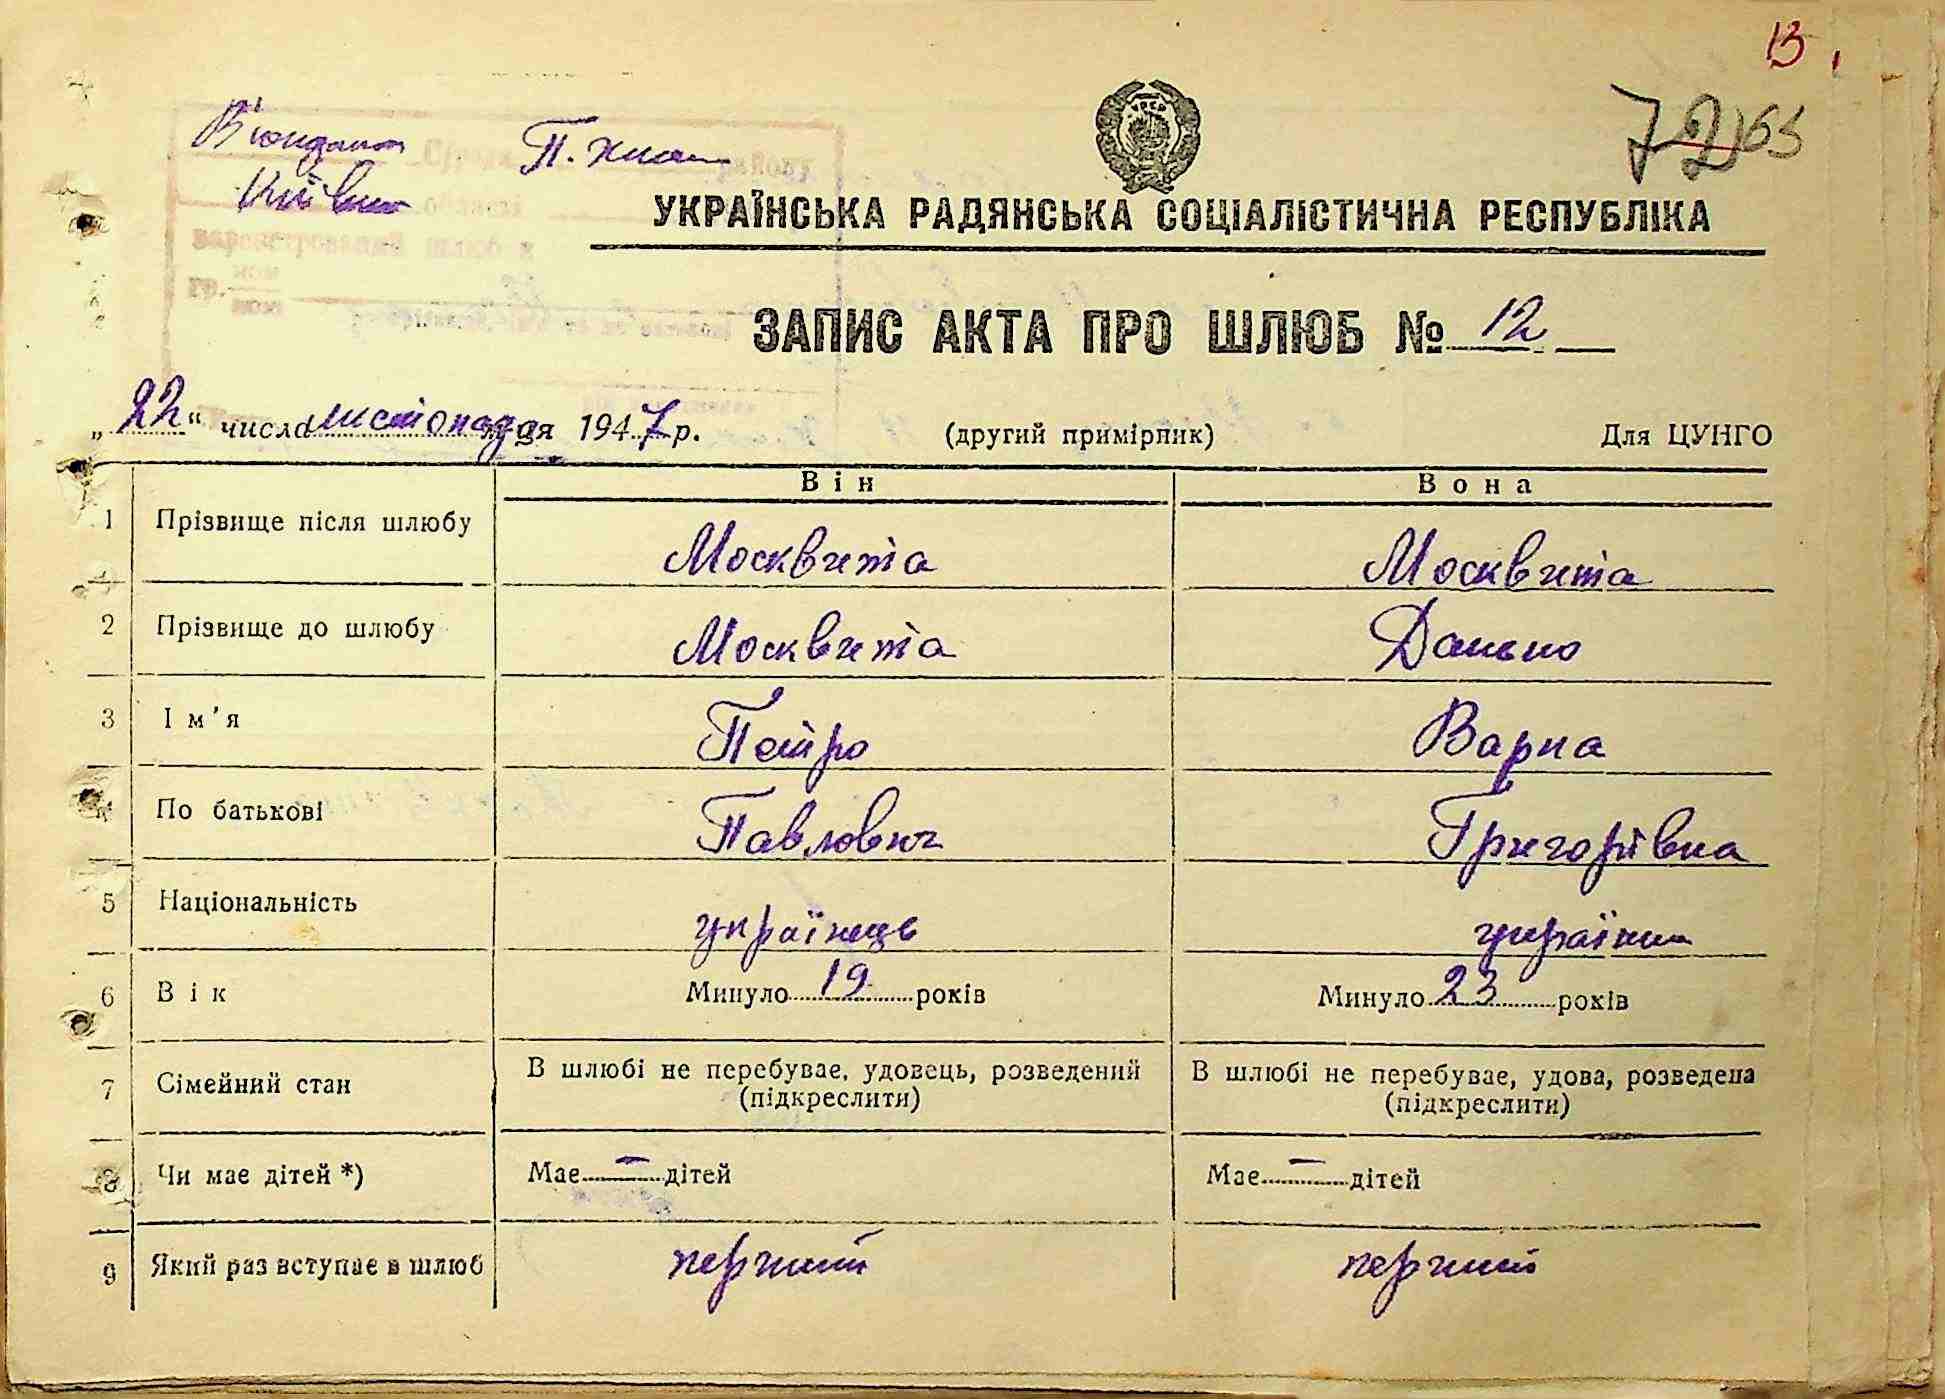 13
7265
П. Хма
Київська
району
області
зареєстрований шлюб з
гр.
УРСР
УКРАЇНСЬКА РАДЯНСЬКА СОЦІАЛІСТИЧНА РЕСПУБЛІКА
ЗАПИС АКТА ПРО ШЛЮБ № 12
„22“ числа листопада м-ця 1947 р. (другий примірник) Для ЦУНГО
Він Вона
1 Прізвище після шлюбу Москвита Москвита
2 Прізвище до шлюбу Москвита Данько
3 Ім'я Петро Варка
4 По батькові Павлович Григорівна
5 Національність українець українка
6 Вік Минуло 19 років Минуло 23 років
7 Сімейний стан В шлюбі не перебуває, удовець, розведений (підкреслити) В шлюбі не перебуває, удова, розведена (підкреслити)
8 Чи має дітей *) Має — дітей Має — дітей
9 Який раз вступає в шлюб перший перший